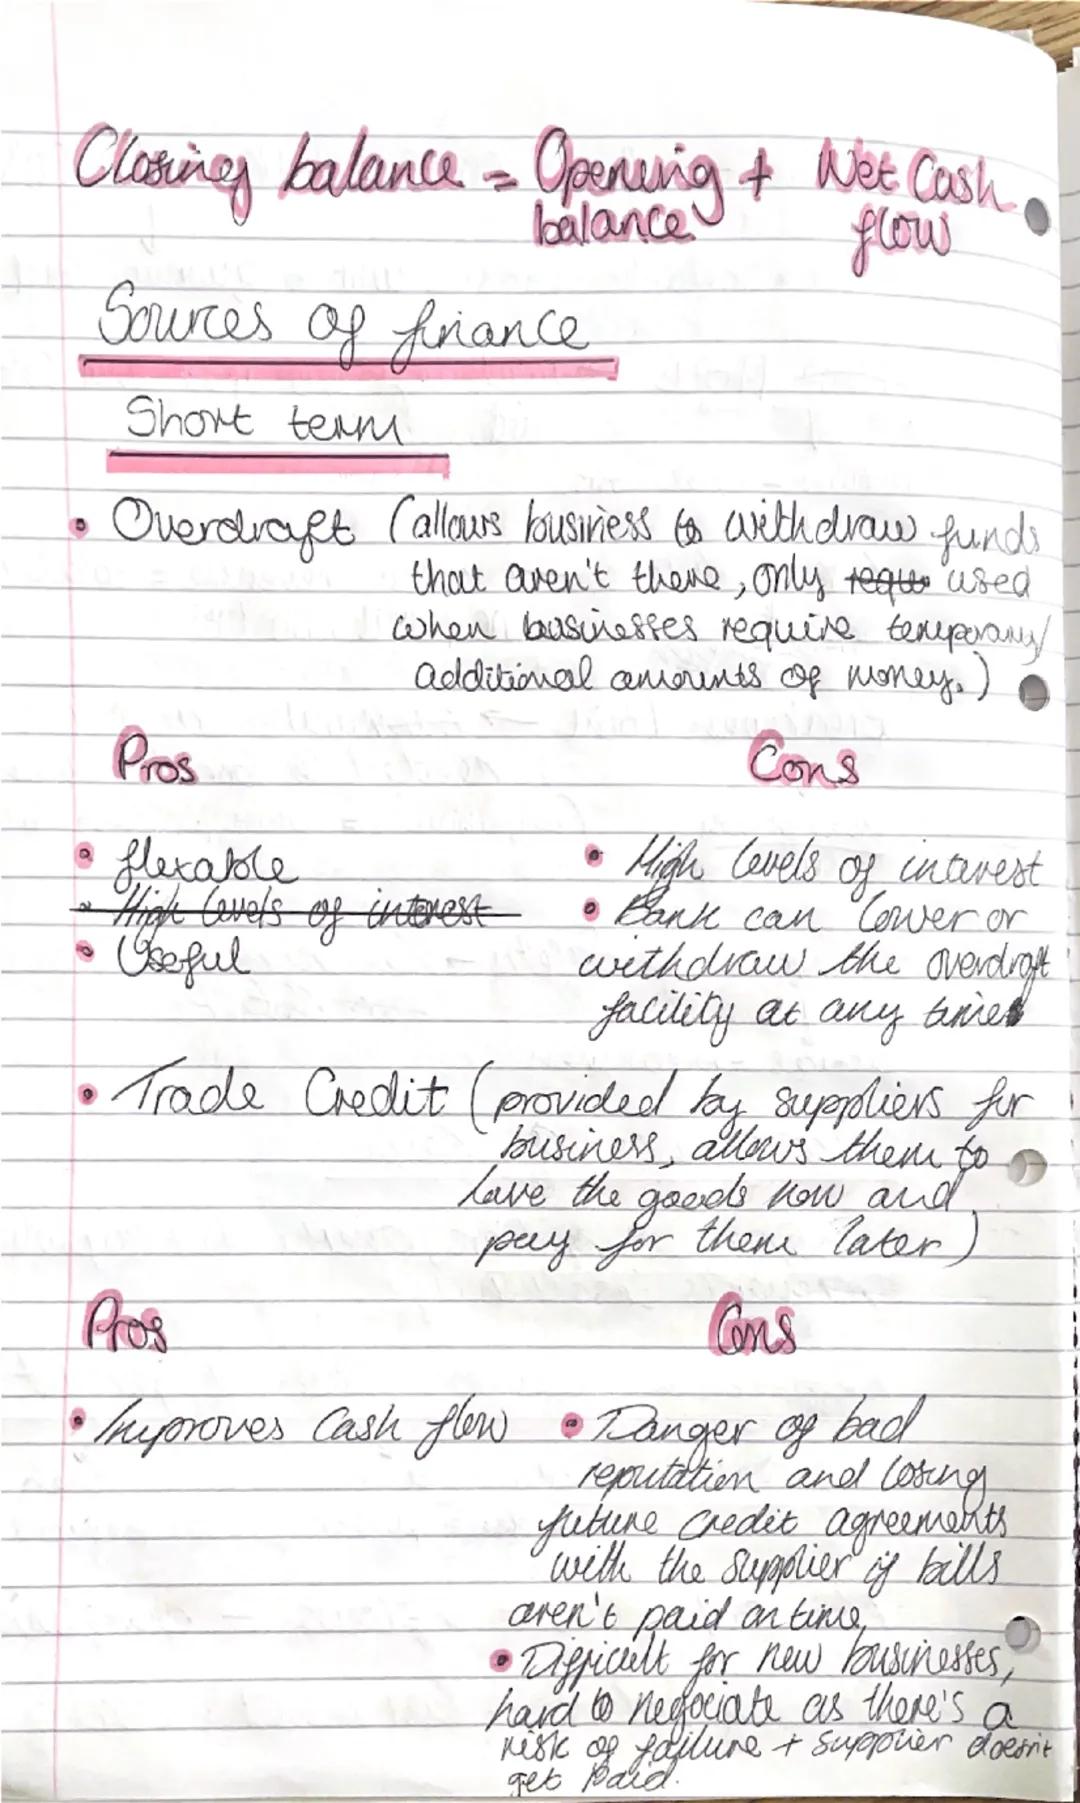 Closing balance = Opening + Net Cash
balance flow
Sources of finance
Short term
• Overdraft (allows business to withdraw funds
that aren't there, only used
when businesses require temporary/
additional amounts of money.)
Pros Cons
• flexable • High levels of interest
• High levels of interest • Bank can lower or
• Useful withdraw the overdraft
facility at any time
• Trade Credit (provided by suppliers for
business, allows them to
have the goods now and
pay for them later)
Pros Cons
• Improves Cash flow • Danger of bad
reputation and losing
future credit agreements
with the supplier if bills
aren't paid on time,
• Difficult for new businesses,
hard to negociate as there's a
risk of failure + supplier doesn't
get paid.